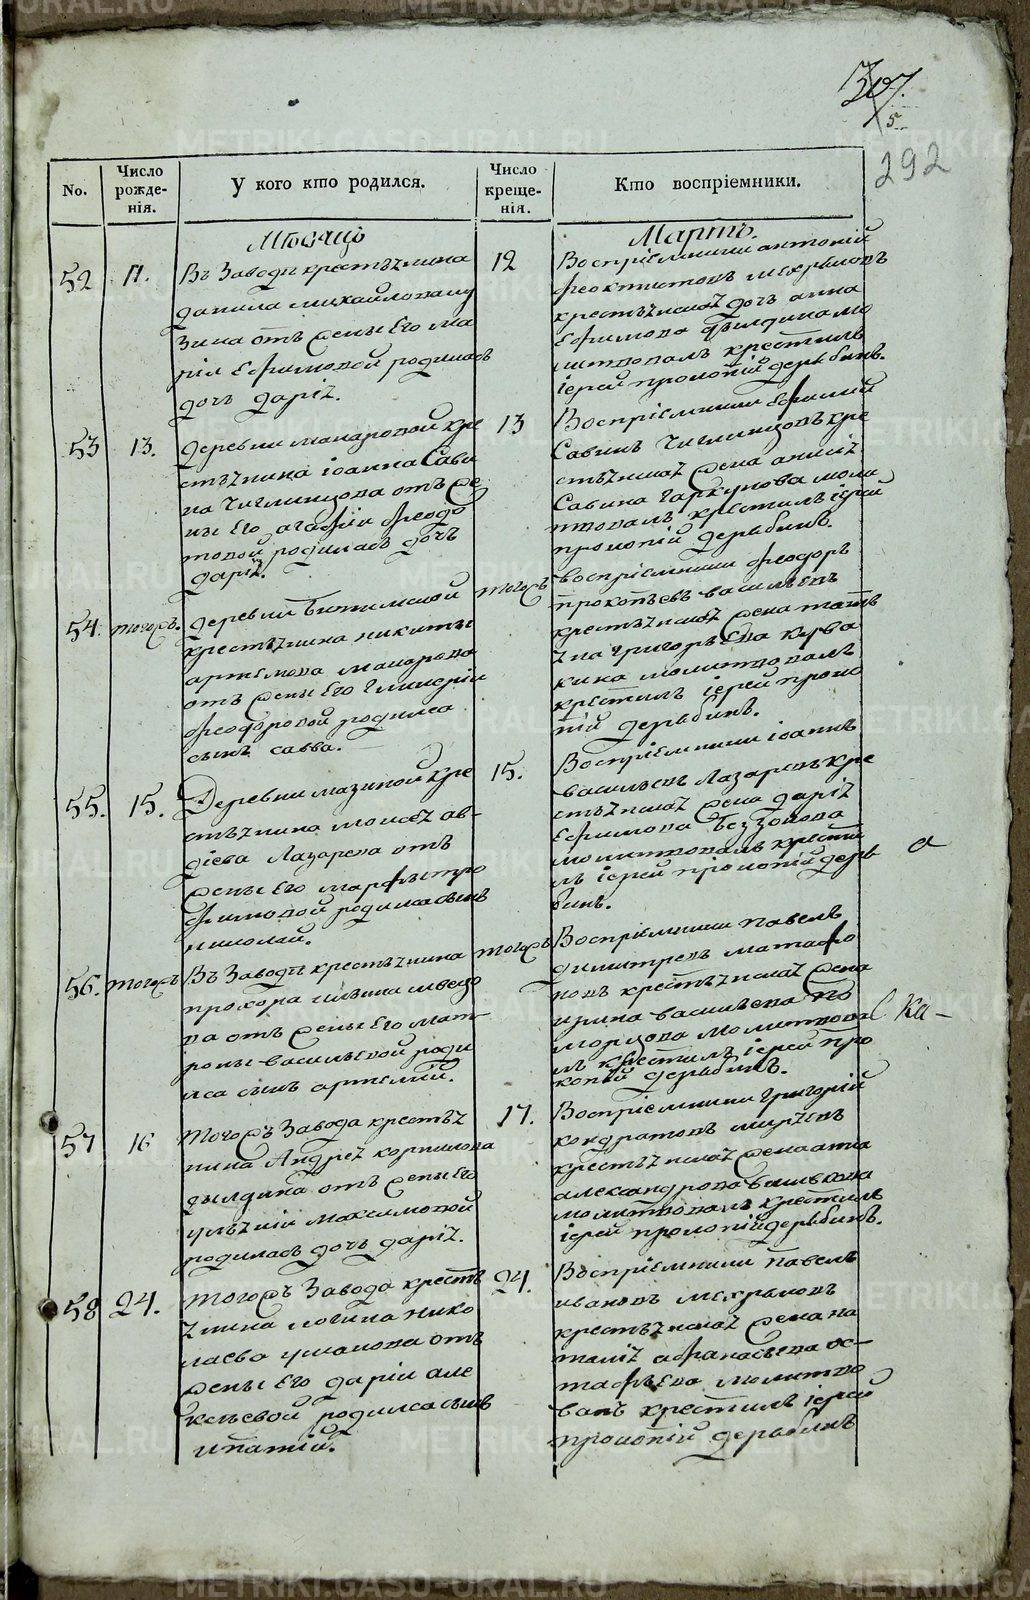 307.
5
292
No.
Число рожде-нія.
У кого кто родился.
Число креще-нія.
Кто воспріемники.
Мѣсяцъ
Мартъ.
52
11.
Въ Заводѣ крестьянина
данила михайлова
зина отъ жены Его ма
ріи Ефимовой родилась
дочь дарія.
12
Воспріемники антоній
феоктистовъ
крестьянскоя дочь анна
Ефимова дылдина мо
литвовалъ крестилъ
іерей прокопій дерябинъ.
53
13.
деревни макаровой кре
стьянина іоанна Сави
на Чигминцова отъ же
ны Его агафіи феодо
товой родилась дочь
дарія.
13
Воспріемники Ефимий
Савинъ Чигминцовъ кре
стьянскоя жена анисія
Савина Гаркунова моли
твовалъ крестилъ іерей
прокопій дерябинъ.
54.
тогожъ.
деревни Битимской
крестьянина никиты
артемова макарова
отъ жены Его Гликеріи
феодоровой родился
сынъ савва.
тогожъ
воспріемники феодоръ
прокопьевъ васильевъ
крестьянскоя жена татъ
яна григорьева
кина молитвовалъ
крестилъ іерей проко
пій дерябинъ.
55.
15.
Деревни мазиной кре
стьянина моисея ав-
діева Лазарева отъ
жены Его марфы тро
фимовой родился сынъ
николай.
15.
Воспріемники іоаннъ
васильевъ Лазаревъ кре
стьянскоя жена дарія
Ефимова Беззонова
молитвовалъ крести
лъ іерей прокопій деря
бинъ.
а
56.
тогожъ
Въ Заводѣ крестьянина
прохора ильина швецо
ва отъ жены Его мат
роны васильевой роди
лся сынъ артемий.
тогожъ
Воспріемники павелъ
димитревъ матафо
новъ крестьянскоя жена
ирина васильева по
морцева молитвова
лъ крестилъ іерей про
копій дерябинъ.
ка-
57
16
тогожъ Завода крестья
нина Андрея корнилова
дылдина отъ жены Его
ульяніи максимовой
родилась дочь дарія.
17.
Воспріемники григорій
кондратовъ
крестьянскоя жена анна
александрова
молитвовалъ крестилъ
іерей прокопій дерябинъ.
58
24.
тогожъ Завода кресть
янина логина нико
лаева ушакова отъ
жены Его даріи але
ксѣевой родился сынъ
ипатій.
24.
Воспріемники павелъ
ивановъ
крестьянскоя жена на
талія афанасьева ос-
тафьева молитво
валъ крестилъ іерей
прокопій дерябинъ
METRIKI.GASO-URAL.RU